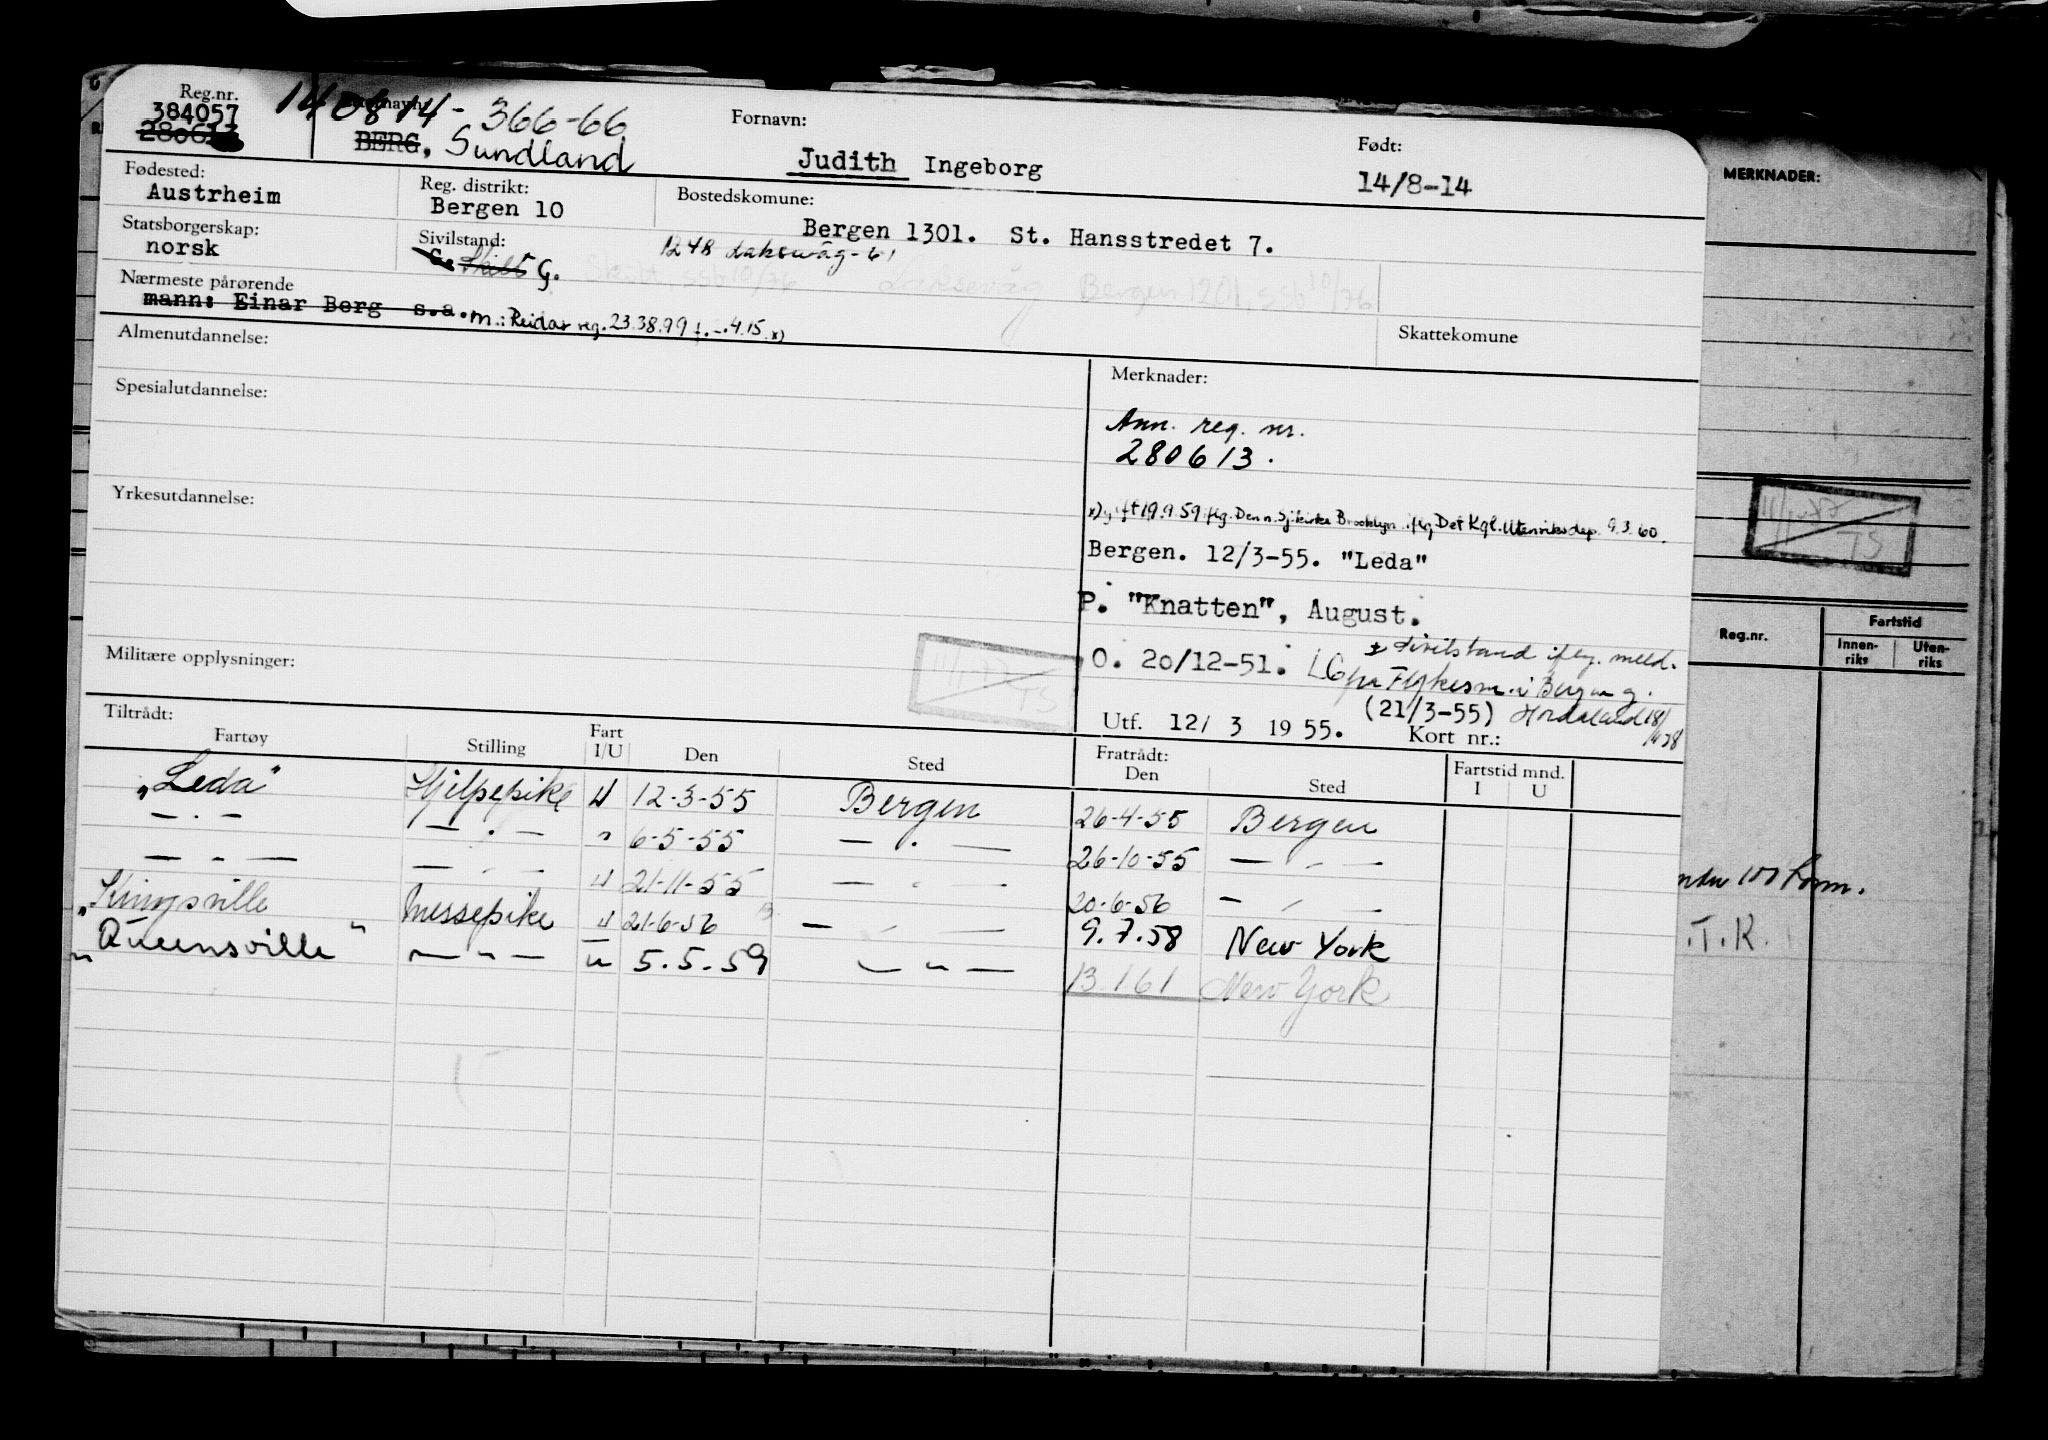 Reg.nr.
384057
280613
140814-366-66
BERG, Sundland
Fornavn:
Judith Ingeborg
Født:
14/8-14
Fødested:
Austrheim
Reg. distrikt:
Bergen 10
Bostedskomune:
Bergen 1301. St. Hansstredet 7.
Statsborgerskap:
norsk
Sivilstand:
G. Skilt G.
1248 Laksevåg-61
Skilt, ssb 10/76 Laksevåg Bergen 1201, ssb 10/76
Nærmeste pårørende
mann: Einar Berg s.a. m.: Reidar reg. 23.38.99 f. -.4.15 x)
Skattekomune
Almenutdannelse:
Spesialutdannelse:
Yrkesutdannelse:
Militære opplysninger:
11/1-77
TS
Merknader:
Ann. reg. nr.
280613.
x) gift 19.9.59 iflg. Den n. Sj.kirke Brooklyn iflg Det Kgl. Utenriksdep. 9.3.60.
Bergen. 12/3-55. "Leda"
P. "Knatten", August.
O. 20/12-51.
± Sivilstand iflg. meld.
fra Fylkesm. i Bergen g.
(21/3-55) Hordaland 18/
Utf. 12/ 3 19 55. Kort nr.:
Tiltrådt:
Fartøy Stilling Fart I/U Den Sted
Fratrådt:
Den Sted Fartstid mnd. I U
"Leda" Hjelpepike U 12-3-55 Bergen 26-4-55 Bergen
— . — — . — " 6-5-55 — . — 26-10-55 — " —
— " — — " — U 21-11-55 — " — 20-6-56 — " —
"Kingsville" Messepike U 21-6-56 — " — 9.7.58 New York
"Queensville" — " — U 5.5.59 — " — 13.1.61 New York
MERKNADER:
11/1-77
TS
Reg.nr.
Fartstid
Innen-riks
Uten-riks
.T.R.